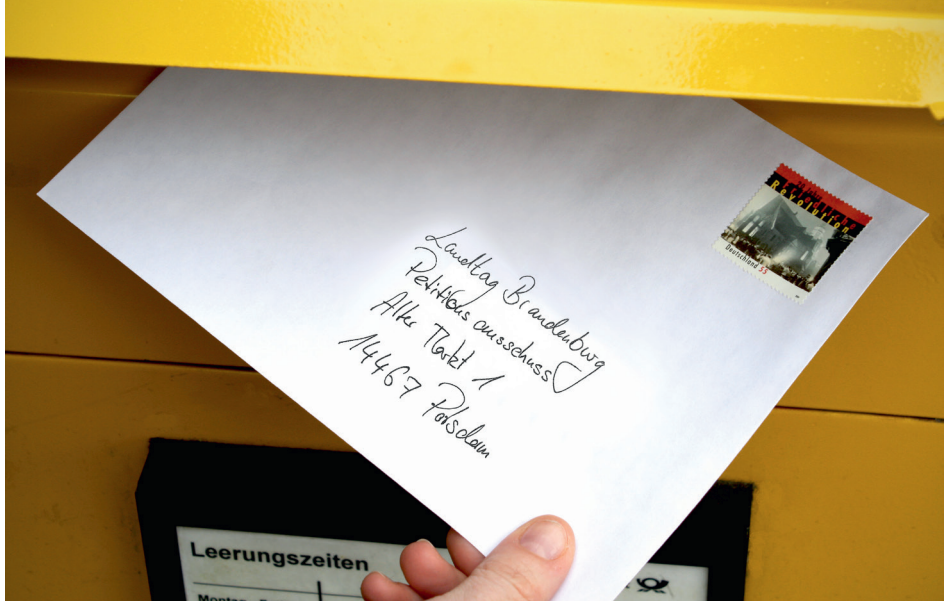 Landtag Brandenburg
Petitionsausschuss
Alter Markt 1
14467 Potsdam
Revolution
Deutschland 55
Leerungszeiten